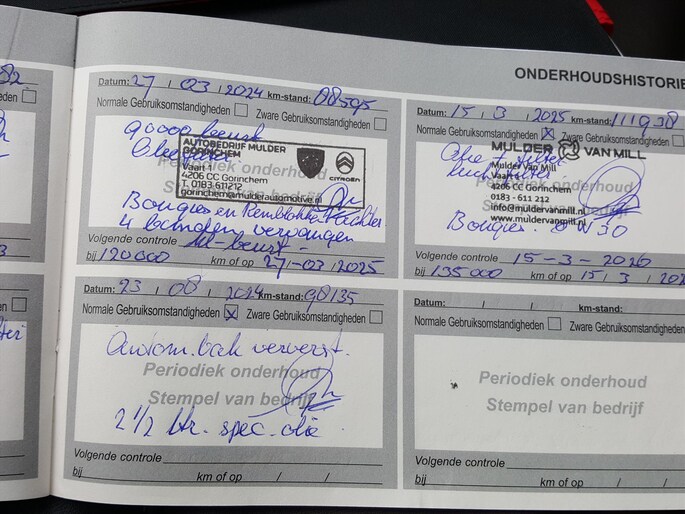 ONDERHOUDSHISTORIE
82
eden
Datum: 27 / 03 / 2024 km-stand: 88595
Normale Gebruiksomstandigheden Zware Gebruiksomstandigheden
90000 beurt
Periodiek onderhoud
AUTOBEDRIJF MULDER
GORINCHEM
Vaart 1
4206 CC Gorinchem
T. 0183 611212
gorinchem@mulderautomotive.nl
CITROËN
Bougies en Remblokken Achter
4 banden vervangen
Volgende controle
bij 120000 km of op 27-03/2025
Datum: 23 / 08 / 2024 km-stand: 98135
Normale Gebruiksomstandigheden Zware Gebruiksomstandigheden
Autom. bak ververst.
Periodiek onderhoud
Stempel van bedrijf
2 1/2 ltr. spec. olie
Volgende controle
bij km of op / /
Datum: 15 / 3 / 2025 km-stand: 111938
Normale Gebruiksomstandigheden Zware Gebruiksomstandigheden
MULDER VAN MILL
Olie + filter
Mulder Van Mill
Vaart 1
4206 CC Gorinchem
0183 - 611 212
info@muldervanmill.nl
www.muldervanmill.nl
Bougies. 0W30
Volgende controle 15-3-2026
bij 135000 km of op 15 / 3 / 202
Datum: / / km-stand:
Normale Gebruiksomstandigheden Zware Gebruiksomst
Periodiek onderhoud
Stempel van bedrijf
Volgende controle
bij km of op / /